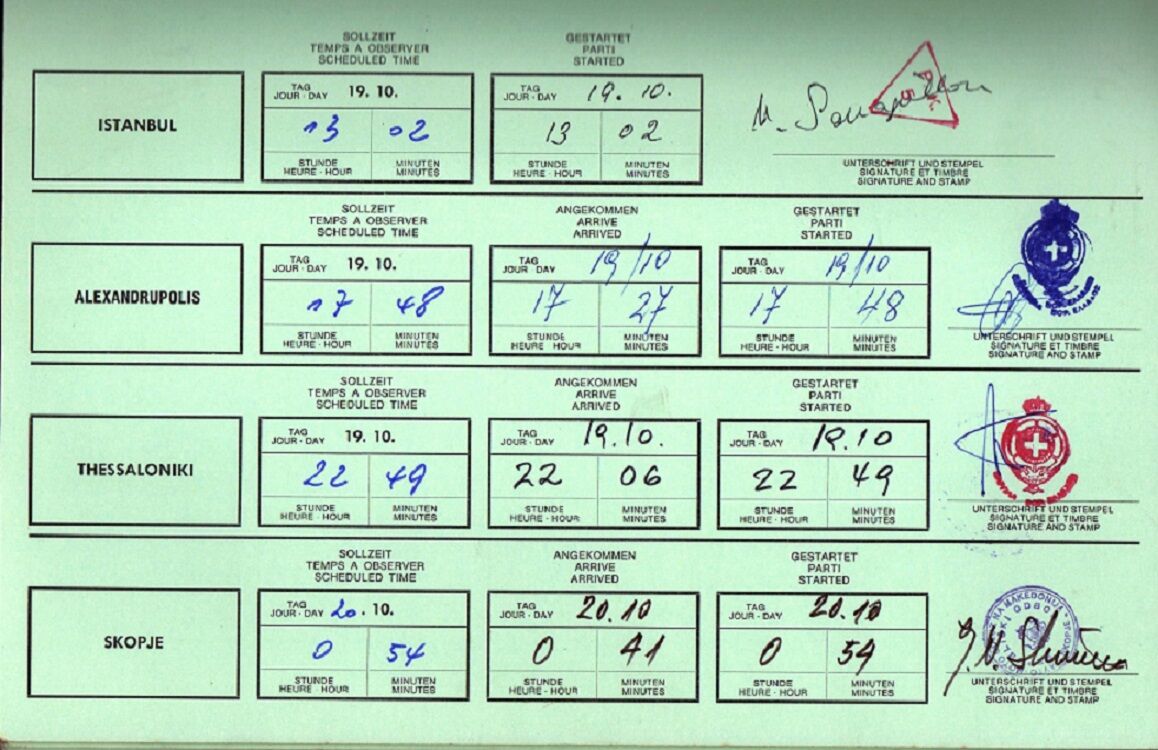 SOLLZEIT GESTARTET
TEMPS A OBSERVER PARTI
SCHEDULED TIME STARTED
ISTANBUL
TAG
JOUR - DAY 19. 10.
13 02
STUNDE MINUTEN
HEURE - HOUR MINUTES
TAG
JOUR - DAY 19. 10.
13 02
STUNDE MINUTEN
HEURE - HOUR MINUTES
UNTERSCHRIFT UND STEMPEL
SIGNATURE ET TIMBRE
SIGNATURE AND STAMP
SOLLZEIT ANGEKOMMEN GESTARTET
TEMPS A OBSERVER ARRIVE PARTI
SCHEDULED TIME ARRIVED STARTED
ALEXANDRUPOLIS
TAG
JOUR - DAY 19. 10.
17 48
STUNDE MINUTEN
HEURE - HOUR MINUTES
TAG
JOUR - DAY 19/10
17 27
STUNDE MINUTEN
HEURE HOUR MINUTES
TAG
JOUR - DAY 19/10
17 48
STUNDE MINUTEN
HEURE - HOUR MINUTES
UNTERSCHRIFT UND STEMPEL
SIGNATURE ET TIMBRE
SIGNATURE AND STAMP
SOLLZEIT ANGEKOMMEN GESTARTET
TEMPS A OBSERVER ARRIVE PARTI
SCHEDULED TIME ARRIVED STARTED
THESSALONIKI
TAG
JOUR - DAY 19. 10.
22 49
STUNDE MINUTEN
HEURE - HOUR MINUTES
TAG
JOUR - DAY 19.10.
22 06
STUNDE MINUTEN
HEURE - HOUR MINUTES
TAG
JOUR - DAY 19.10
22 49
STUNDE MINUTEN
HEURE - HOUR MINUTES
UNTERSCHRIFT UND STEMPEL
SIGNATURE ET TIMBRE
SIGNATURE AND STAMP
SOLLZEIT ANGEKOMMEN GESTARTET
TEMPS A OBSERVER ARRIVE PARTI
SCHEDULED TIME ARRIVED STARTED
SKOPJE
TAG
JOUR - DAY 20. 10.
0 54
STUNDE MINUTEN
HEURE - HOUR MINUTES
TAG
JOUR - DAY 20.10
0 41
STUNDE MINUTEN
HEURE - HOUR MINUTES
TAG
JOUR - DAY 20.10
0 54
STUNDE MINUTEN
HEURE - HOUR MINUTES
UNTERSCHRIFT UND STEMPEL
SIGNATURE ET TIMBRE
SIGNATURE AND STAMP